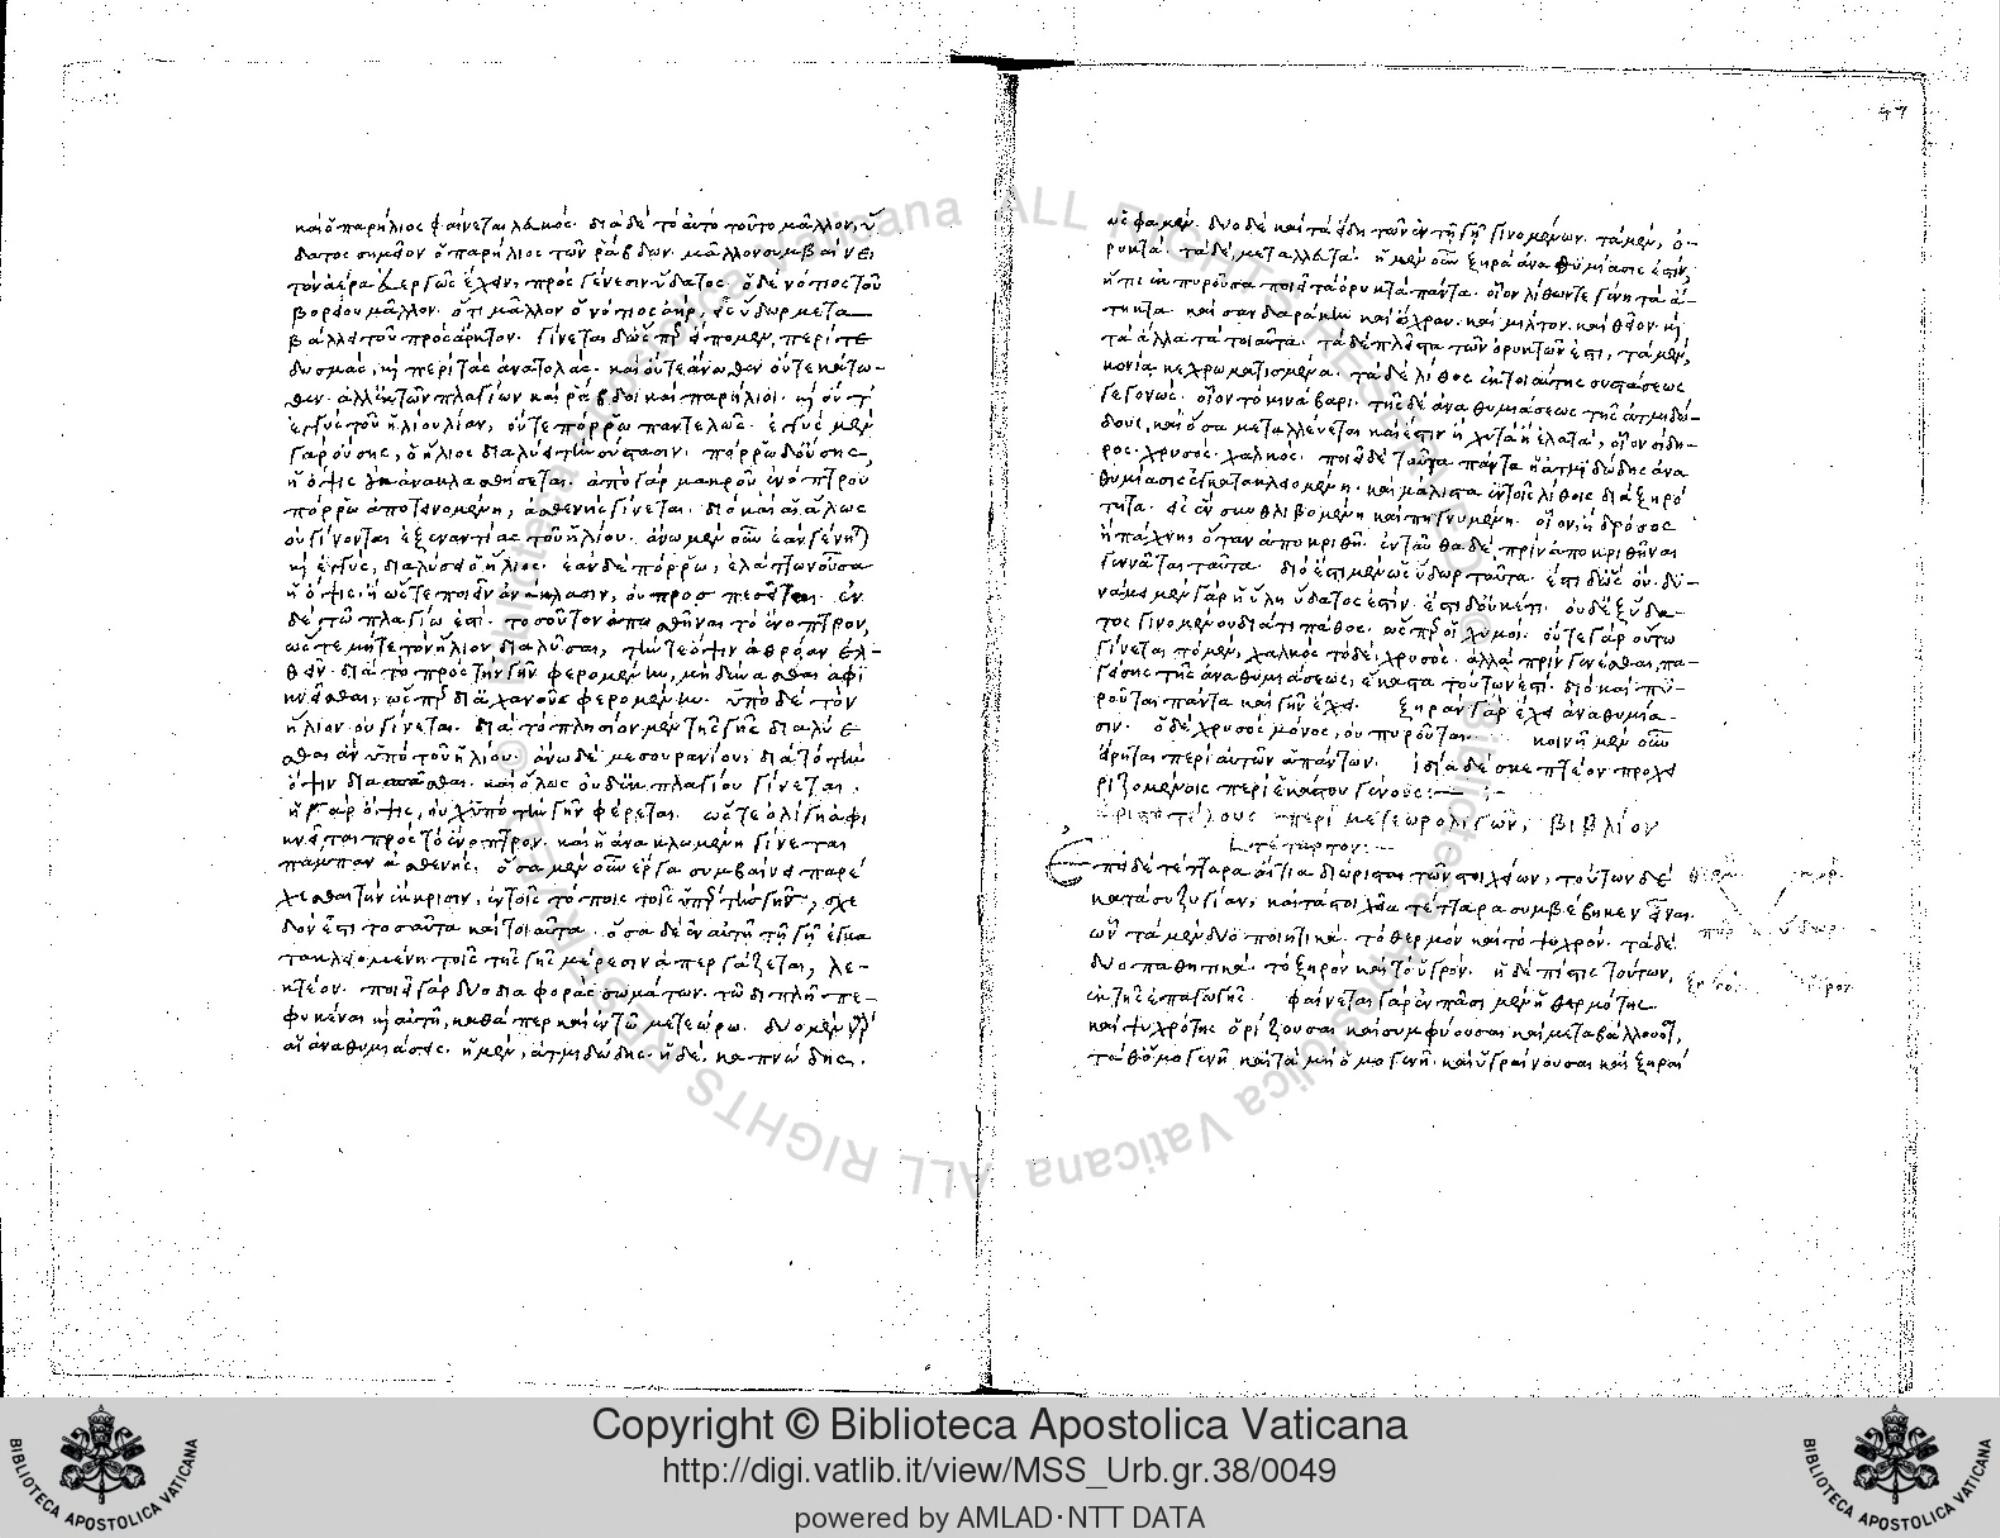 καὶ ὁ παρήλιος φαίνεται λευκός. διὰ δὲ τὸ αὐτὸ τοῦτο μᾶλλον, ὕ
δατος σημεῖον ὁ παρήλιος τῶν ῥάβδων. μᾶλλον συμβαίνει
τὸν ἀέρα εὐεργῶς ἔχειν, πρὸς γένεσιν ὕδατος. ὁ δὲ νότιος τοῦ
βορείου μᾶλλον. ὅτι μᾶλλον ὁ νότιος ἀὴρ, εἰς ὕδωρ μετα
βάλλει τοῦ πρὸς ἄρκτον. γίνεται δ' ὥσπερ εἴπομεν, περί τε
δυσμάς, κὴ περὶ τὰς ἀνατολάς. καὶ οὔτε ἄνωθεν οὔτε κάτω-
θεν. ἀλλ' ἐκ τῶν πλαγίων καὶ ῥάβδοι καὶ παρήλιοι. κὴ οὔτ'
ἐγγὺς τοῦ ἡλίου λίαν, οὔτε πόρρω παντελῶς. ἐγγὺς μὲν
γὰρ οὔσης, ὁ ἥλιος διαλύει τὴν σύστασιν. πόρρω δ' οὔσης,
ἡ ὄψις οὐκ ἀνακλασθήσεται. ἀπὸ γὰρ μακροῦ ἐνόπτρου
πόρρω ἀποτεινομένη, ἀσθενὴς γίνεται. διὸ καὶ αἱ ἅλως
οὐ γίνονται ἐξεναντίας τοῦ ἡλίου. ἄνω μὲν οὖν ἐὰν γένηται
κὴ ἐγγύς, διαλύσει ὁ ἥλιος. ἐὰν δὲ πόρρω, ἐλάττων οὖσα
ἡ ὄψις ἢ ὥστε ποιεῖν ἀνάκλασιν, οὐ προσπεσεῖται. ἐν
δὲ τῷ πλαγίω ἐστὶ. τοσοῦτον ἀποστῆναι τὸ ἔνοπτρον,
ὥστε μήτε τὸν ἥλιον διαλῦσαι, τήν τε ὄψιν ἀθρόαν ἐλ-
θεῖν. διὰ τὸ πρὸς τὴν γῆν φερομένην, μὴ διασπᾶσθαι ἀφι
κνεῖσθαι, ὥσπερ δι' ἀχανοῦς φερομένην. ὑπὸ δὲ τὸν
ἥλιον οὐ γίνεται. διὰ τὸ πλησίον μὲν τῆς γῆς διαλύε
σθαι ἂν ὑπὸ τοῦ ἡλίου. ἄνω δὲ μεσουρανίου, διὰ τὸ τὴν
ὄψιν διασπᾶσθαι. καὶ ὅλως οὐδ' ἐκ πλαγίου γίνεται.
ἡ γὰρ ὄψις, οὐχ ὑπὸ τὴν γῆν φέρεται. ὥστε ὀλίγη ἀφι
κνεῖται πρὸς τὸ ἔνοπτρον. καὶ ἡ ἀνακλωμένη γίνεται
πάμπαν ἀσθενής. ὅσα μὲν οὖν ἔργα συμβαίνει παρέ
χεσθαι τὴν ἔκκρισιν, ἐν τοῖς τόποις τοῖς ὑπὲρ τῆς γῆν, σχε
δόν ἐστι τοσαῦτα καὶ τοιαῦτα. ὅσα δὲ ἐν αὐτῇ τῇ γῇ ἐγκα
τακλειομένη τοῖς τῆς γῆς μέρεσιν ἀπεργάζεται, λε-
κτέον. ποιεῖ γὰρ δύο διαφορὰς σωμάτων. τῷ διπλῆ πε-
φυκέναι κὴ αὐτή, καθάπερ καὶ ἐν τῷ μετεώρω. δύο μὲν γὰρ
αἱ ἀναθυμιάσεις. ἡ μὲν, ἀτμιδώδης. ἡ δὲ, καπνώδης.
ὥς φαμεν. δύο δὲ καὶ τὰ εἴδη τῶν ἐν τῇ γῇ γινομένων. τὰ μὲν, ὀ-
ρυκτά. τὰ δὲ, μεταλλευτά. ἡ μὲν οὖν ξηρὰ ἀναθυμίασις ἐστὶν,
ἥτις ἐκπυροῦσα ποιεῖ τὰ ὀρυκτὰ πάντα. οἷον λίθων τε γένη τὰ ἄ-
τηκτα καὶ σανδαράκην καὶ ὤχραν. καὶ μίλτον. καὶ θεῖον. κὴ
τὰ ἄλλα τὰ τοιαῦτα. τὰ δὲ πλεῖστα τῶν ὀρυκτῶν ἐστι, τὰ μὲν,
κονία κεχρωματισμένα. τὰ δὲ λίθος ἐκ τοιαύτης συστάσεως
γεγονώς. οἷον τὸ κινάβαρι. τῆς δὲ ἀναθυμιάσεως τῆς ἀτμιδώ-
δους, καὶ ὅσα μεταλλεύεται καὶ ἐστιν ἢ χυτὰ ἢ ἐλατά, οἷον σίδη-
ρος. χρυσός. χαλκός. ποιεῖ δὲ ταῦτα πάντα ἡ ἀτμιδώδης ἀνα
θυμίασις ἐγκατακλειομένη. καὶ μάλιστα ἐν τοῖς λίθοις διὰ ξηρό
τητα. εἰς ἓν συνθλιβομένη καὶ πηγνυμένη. οἷον, ἡ δρόσος
ἢ πάχνη, ὅταν ἀποκριθῇ. ἐνταῦθα δὲ, πρὶν ἀποκριθῆναι
γεννᾶται ταῦτα. διὸ ἐστὶ μὲν ὡς ὕδωρ ταῦτα. ἐστὶ δ' ὡς οὔ. δυ-
νάμει μὲν γὰρ ἡ ὕλη ὕδατος ἐστίν. ἐστὶ δ' οὐκέτι. οὐδ' ἐξ ὕδα-
τος γινομένου διά τι πάθος. ὥσπερ οἱ χυμοί. οὔτε γὰρ οὕτω
γίνεται τὸ μὲν, χαλκὸς τὸ δὲ, χρυσός. ἀλλὰ πρὶν γενέσθαι, πα-
γείσης τῆς ἀναθυμιάσεως, ἕκαστα τούτων ἐστί. διὸ καὶ πυ-
ροῦται πάντα καὶ γῆν ἔχει. ξηρὰν γὰρ ἔχει ἀναθυμία-
σιν. ὁ δὲ χρυσὸς μόνος, οὐ πυροῦται. κοινῇ μὲν οὖν
εἴρηται περὶ αὐτῶν ἁπάντων. ἰδίᾳ δὲ σκεπτέον προχει
ριζομένοις περὶ ἕκαστον γένους:—
ἀριστοτέλους περὶ μετεωρολογιῶν, βιβλίον
τέταρτον:—
Ἐπεὶ δὲ τέτταρα αἴτια διώρισται τῶν στοιχείων, τούτων δὲ
κατὰ συζυγίαν, καὶ τὰ στοιχεῖα τέτταρα συμβέβηκεν εἶναι.
ὧν τὰ μὲν δύο ποιητικά. τὸ θερμὸν καὶ τὸ ψυχρόν. τὰ δὲ
δύο παθητικά. τὸ ξηρὸν καὶ τὸ ὑγρόν. ἡ δὲ πίστις τούτων,
ἐκ τῆς ἐπαγωγῆς. φαίνεται γὰρ ἐν πᾶσι μὲν ἡ θερμότης
καὶ ψυχρότης ὁρίζουσαι καὶ συμφύουσαι καὶ μεταβάλλουσαι,
τά θ' ὁμογενῆ καὶ τὰ μὴ ὁμογενῆ. καὶ ὑγραίνουσαι καὶ ξηραί
πῦρ ὕδωρ
Copyright © Biblioteca Apostolica Vaticana
http://digi.vatlib.it/view/MSS_Urb.gr.38/0049
powered by AMLAD·NTT DATA
BIBLIOTECA APOSTOLICA VATICANA
BIBLIOTECA APOSTOLICA VATICANA